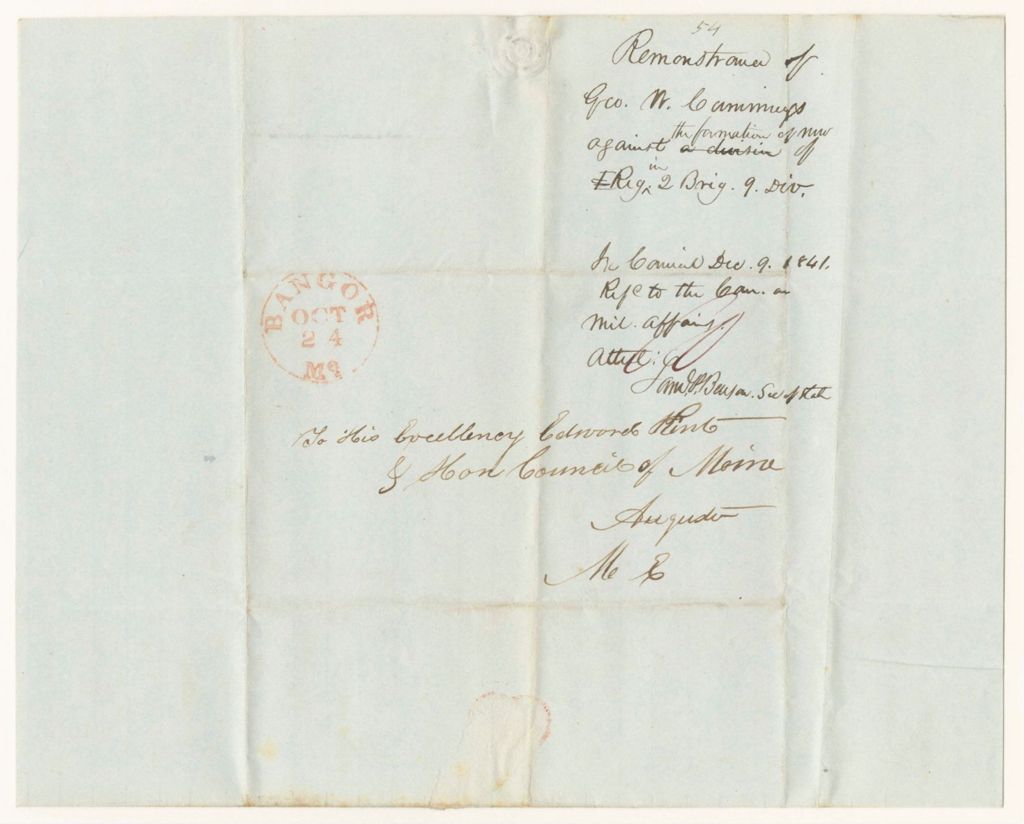 54
Remonstrance of
Geo. W. Cummings
the formation of new
against a division of
in
I Reg ^ 2 Brig. 9. Div.
In Council Dec. 9. 1841.
Refd to the Com. on
Mil. Affairs.
Attest:
Saml P. Benson. Sec of State
BANGOR
OCT
24
Me
To His Excellency Edward Kent
& Hon Council of Maine
Augusta
M E